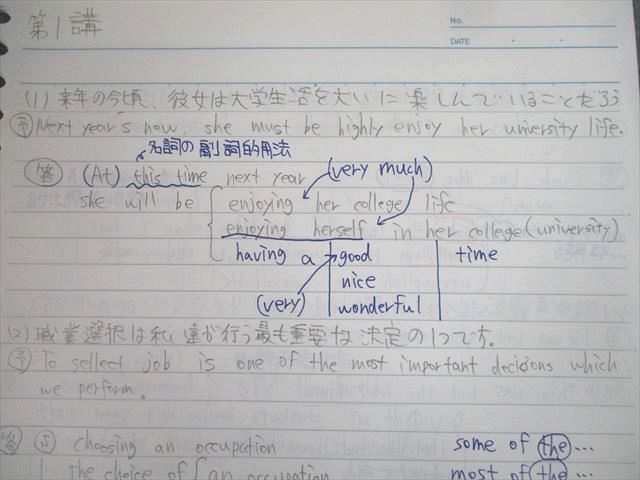 第1講
No.
DATE
(1) 来年の今頃、彼女は大学生活を大いに楽しんでいることだろう
予 Next year's now, she must be highly enjoy her university life.
名詞の副詞的用法
答 (At) this time next year (very much)
she will be enjoying her college life
enjoying herself in her college (university)
having a good time
nice
(very) wonderful
(2) 職業選択は私達が行う最も重要な決定の1つです。
予 To sellect job is one of the most important decisions which
we perform.
答 S choosing an occupation some of the…
The choice of an occupation most of the…